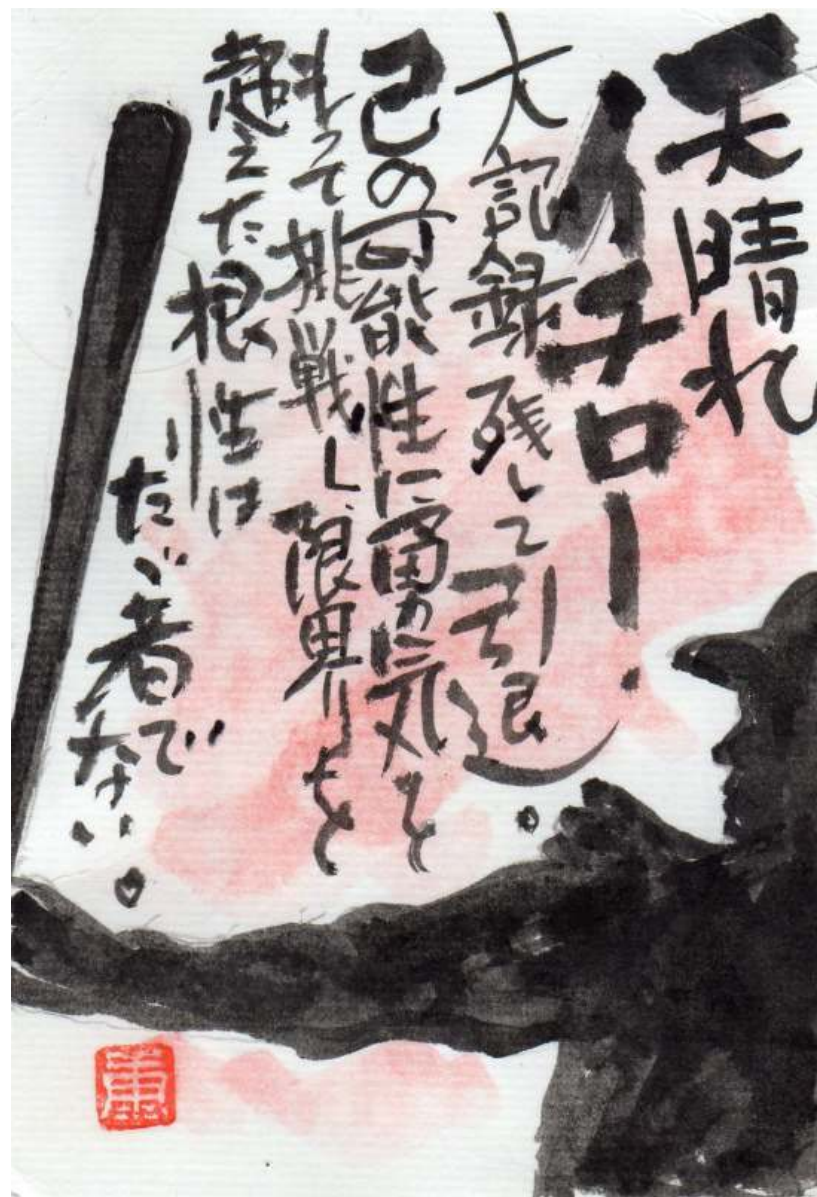 天晴れ
イチロー!
大記録残して引退。
己の可能性に勇気を
もって挑戦し、限界を
超えた根性は
たゞ者で
ない。